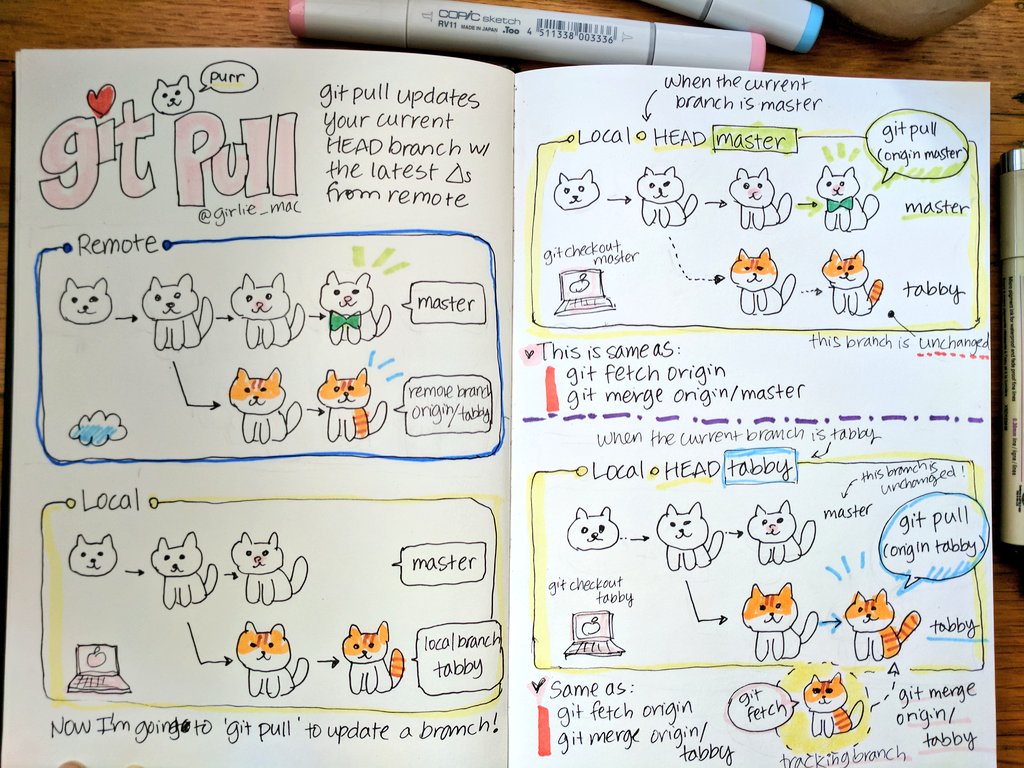 COPIC sketch
RV11 MADE IN JAPAN .Too 4 511338 003336
purr
git Pull
@girlie_mac
git pull updates
your current
HEAD branch w/
the latest Δs
from remote
Remote
master
remove branch
origin/tabby
Local
master
local branch
tabby
Now I'm going to 'git pull' to update a branch!
When the current
branch is master
Local HEAD master
git pull
(origin master)
master
git checkout
master
tabby
this branch is unchanged
This is same as:
git fetch origin
git merge origin/master
when the current branch is tabby
Local HEAD tabby
this branch is
unchanged!
master
git pull
(origin tabby)
git checkout
tabby
tabby
Same as:
git fetch origin
git merge origin/
tabby
git
fetch
git merge
origin/
tabby
tracking branch